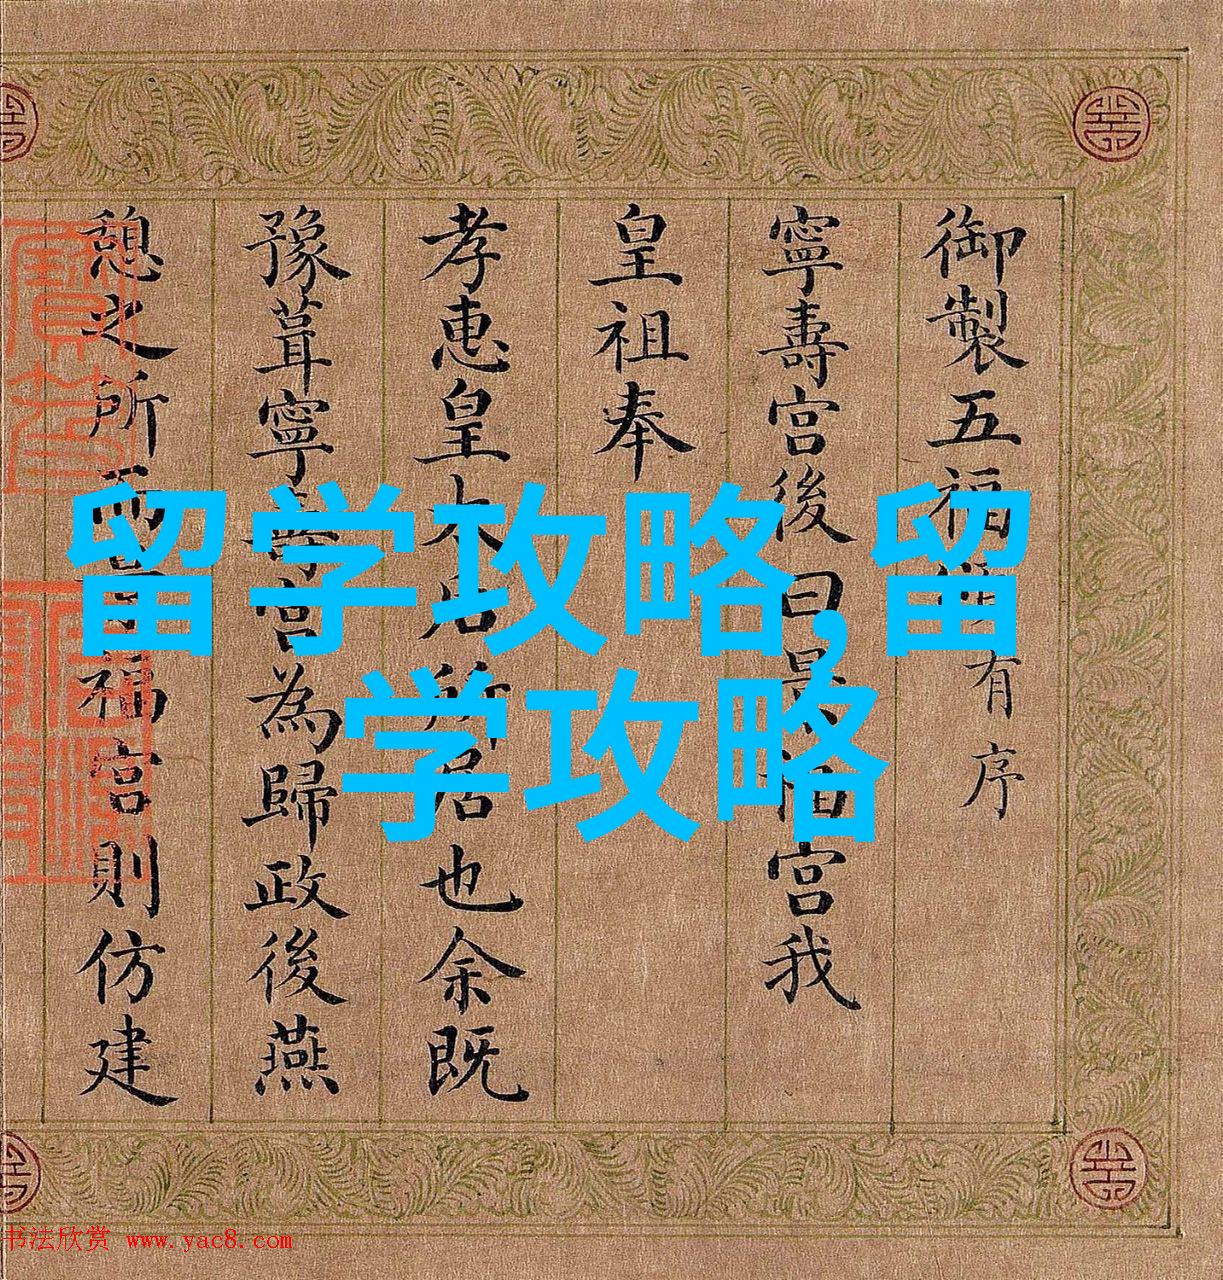 御製五福有序
寧壽宮後曰景福宮我
皇祖奉
孝惠皇太后所居也余既
豫葺寧壽宮為歸政後燕
憩之所而景福宮則仿建
留学攻略,留
学攻略
书法欣赏 www.yac8.com